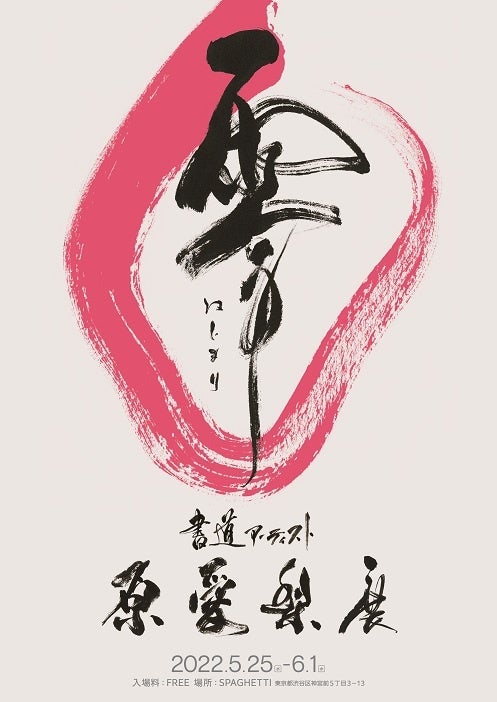 はじまり
書道アーティスト
原愛梨展
2022.5.25水-6.1水
入場料:FREE 場所:SPAGHETTI 東京都渋谷区神宮前5丁目3−13